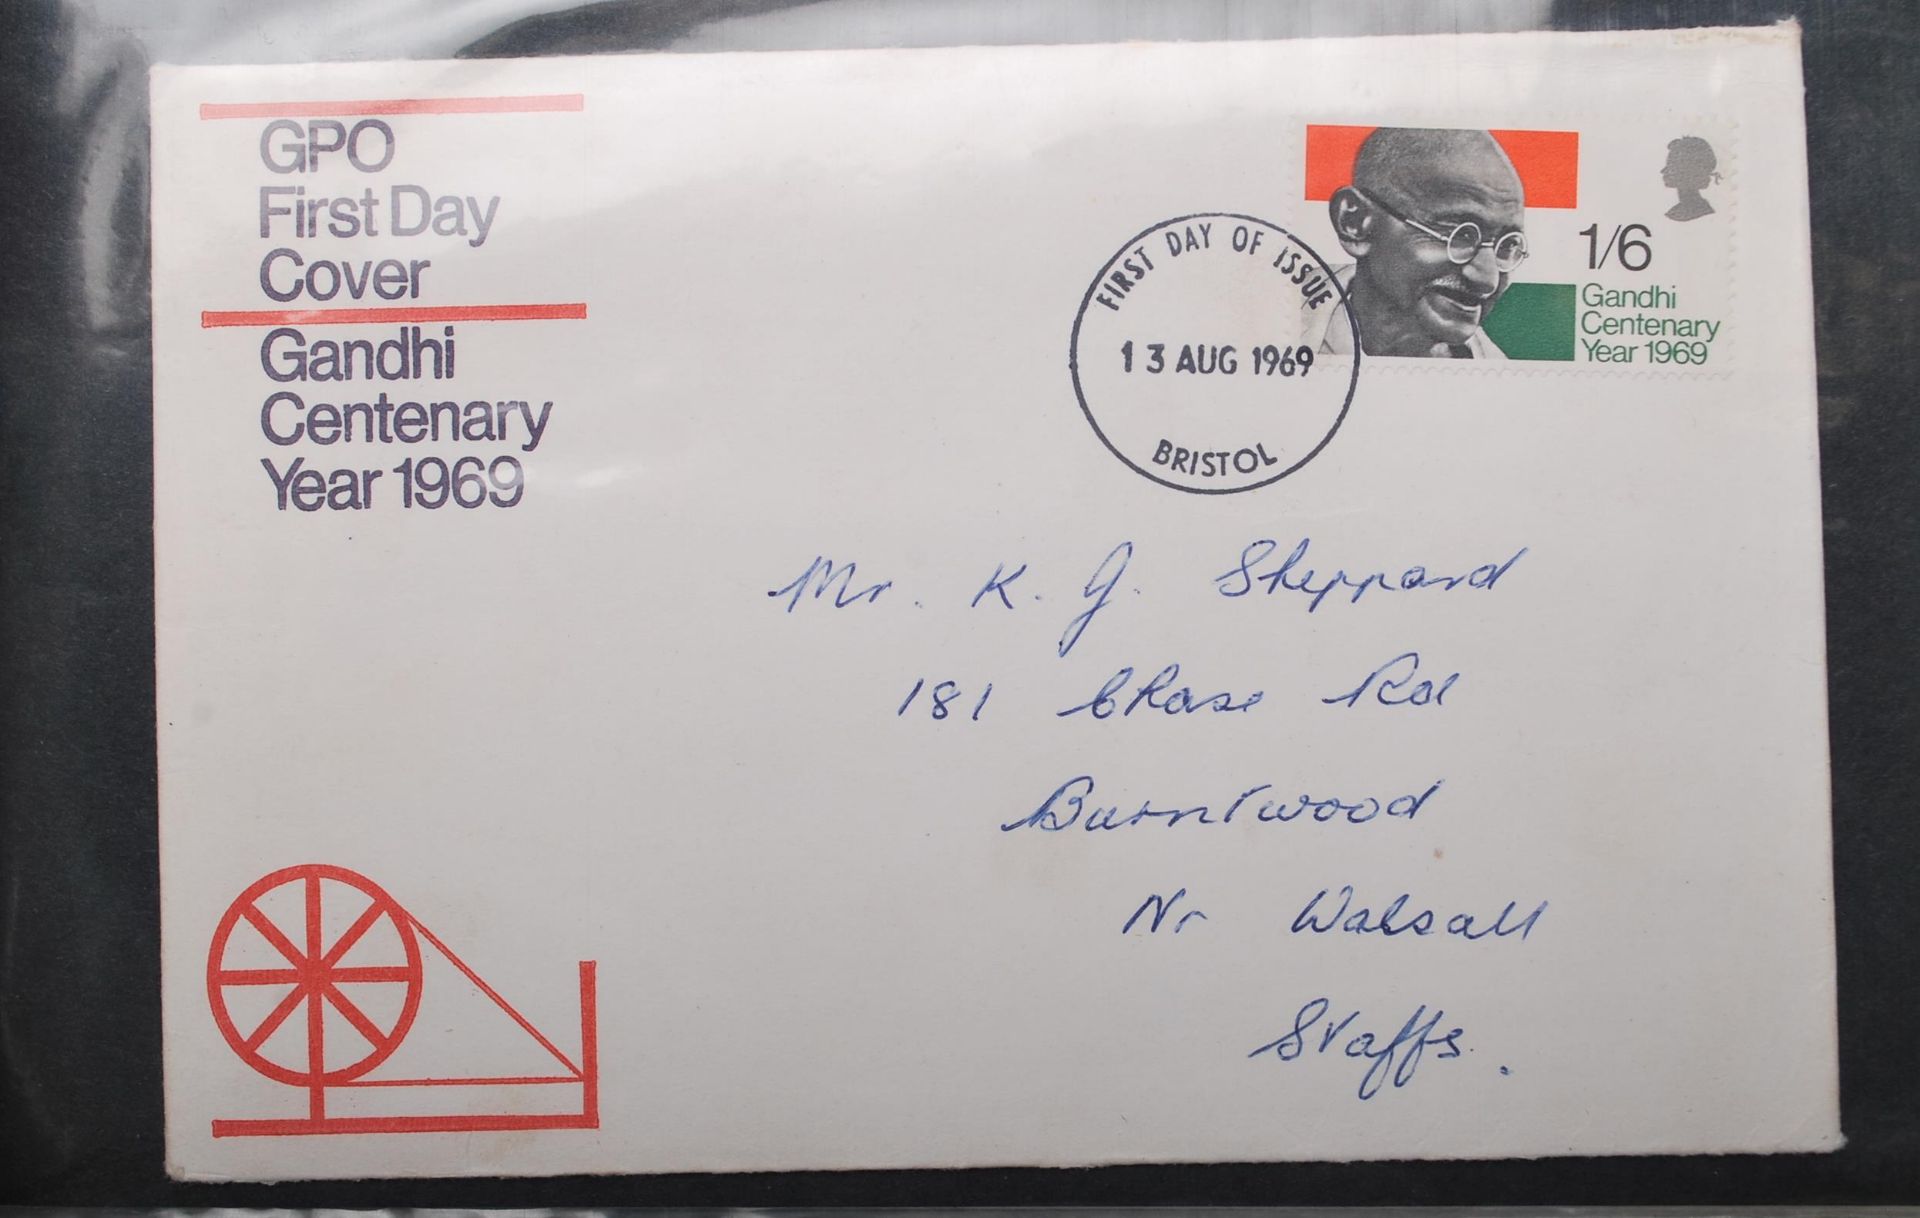 GPO
First Day
Cover
Gandhi
Centenary
Year 1969
1/6
Gandhi
Centenary
Year 1969
FIRST DAY OF ISSUE
13 AUG 1969
BRISTOL
Mr. K. J. Sheppard
181 Chase Rd
Burntwood
Nr Walsall
Staffs.